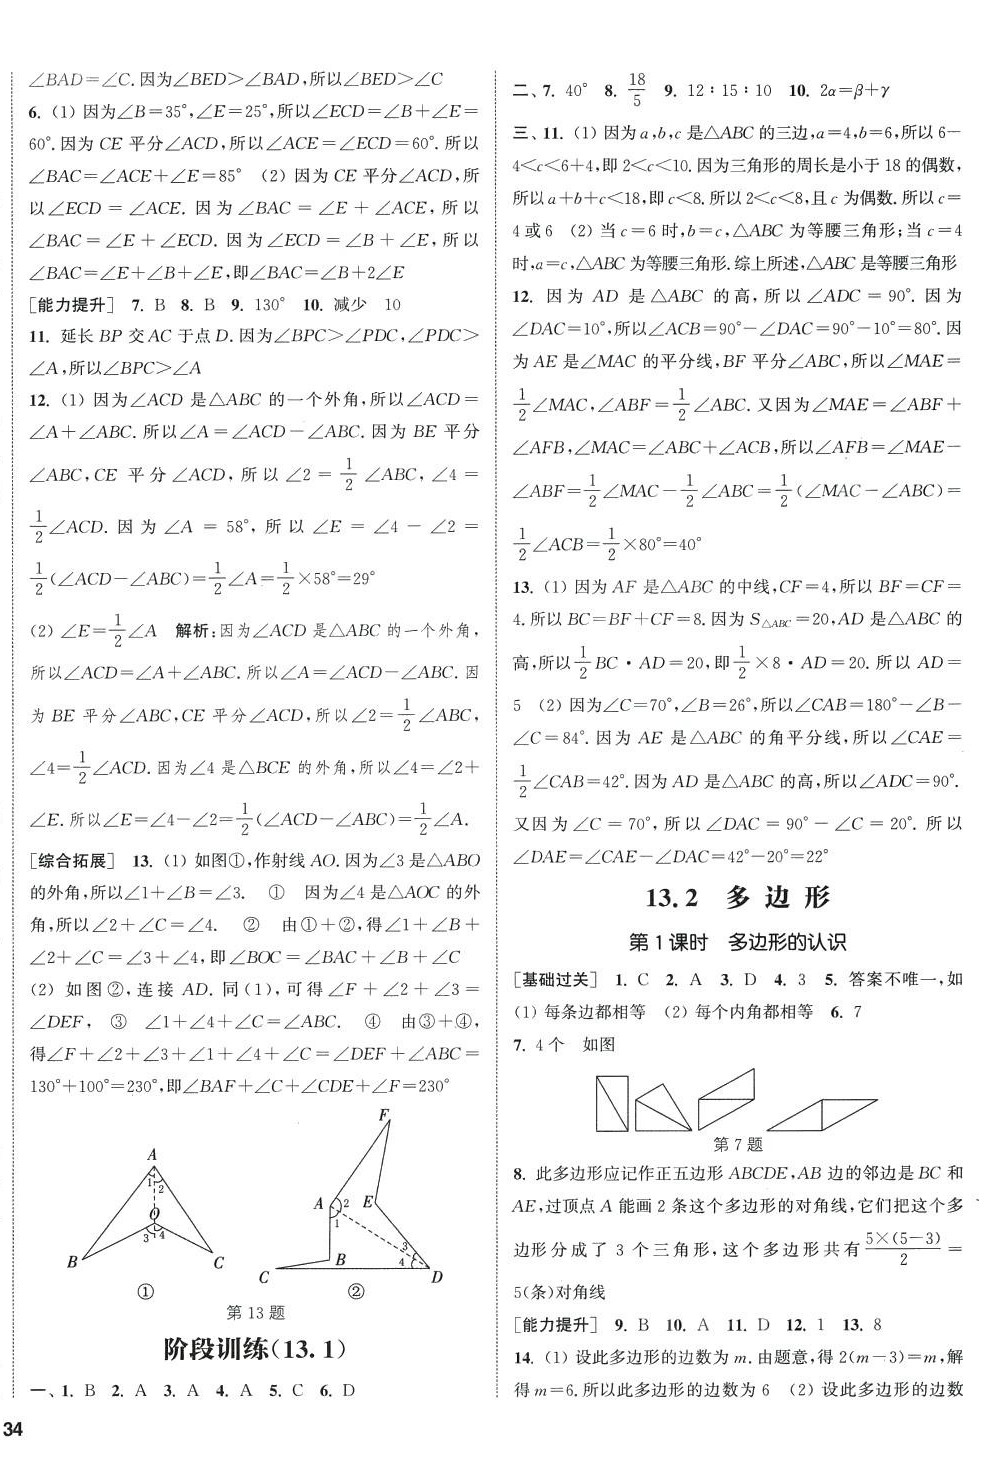 ∠BAD=∠C.因为∠BED>∠BAD,所以∠BED>∠C
6. (1) 因为∠B=35°,∠E=25°,所以∠ECD=∠B+∠E=
60°.因为 CE 平分∠ACD,所以∠ACE=∠ECD=60°.所以
∠BAC=∠ACE+∠E=85° (2) 因为 CE 平分∠ACD,所
以∠ECD = ∠ACE. 因为∠BAC = ∠E + ∠ACE,所以
∠BAC=∠E+∠ECD. 因为∠ECD=∠B+∠E,所以
∠BAC=∠E+∠B+∠E,即∠BAC=∠B+2∠E
[能力提升] 7. B 8. B 9. 130° 10. 减少 10
11. 延长 BP 交 AC 于点 D.因为∠BPC>∠PDC,∠PDC>
∠A,所以∠BPC>∠A
12. (1) 因为∠ACD 是△ABC 的一个外角,所以∠ACD=
∠A+∠ABC.所以∠A=∠ACD-∠ABC.因为 BE 平分
∠ABC,CE 平分∠ACD,所以∠2=1/2∠ABC,∠4=
1/2∠ACD. 因为∠A = 58°, 所以∠E = ∠4 - ∠2 =
1/2(∠ACD-∠ABC)=1/2∠A=1/2×58°=29°
(2) ∠E=1/2∠A 解析:因为∠ACD 是△ABC 的一个外角,
所以∠ACD=∠A+∠ABC.所以∠A=∠ACD-∠ABC.因
为 BE 平分∠ABC,CE 平分∠ACD,所以∠2=1/2∠ABC,
∠4=1/2∠ACD.因为∠4 是△BCE 的外角,所以∠4=∠2+
∠E.所以∠E=∠4-∠2=1/2(∠ACD-∠ABC)=1/2∠A.
[综合拓展] 13. (1) 如图①,作射线 AO.因为∠3 是△ABO
的外角,所以∠1+∠B=∠3. ① 因为∠4 是△AOC 的外
角,所以∠2+∠C=∠4. ② 由①+②,得∠1+∠B+
∠2+∠C=∠3+∠4,即∠BOC=∠BAC+∠B+∠C
(2) 如图②,连接 AD. 同(1),可得∠F+∠2+∠3=
∠DEF, ③ ∠1+∠4+∠C=∠ABC. ④ 由③+④,
得∠F+∠2+∠3+∠1+∠4+∠C=∠DEF+∠ABC=
130°+100°=230°,即∠BAF+∠C+∠CDE+∠F=230°
A
1 2
O
3 4
B
C
①
F
A
2
1
E
B
3
4
C
D
②
第13题
阶段训练(13.1)
一、1. B 2. A 3. A 4. A 5. C 6. D
34
二、7. 40° 8. 18/5 9. 12∶15∶10 10. 2α=β+γ
三、11. (1) 因为 a,b,c 是△ABC 的三边,a=4,b=6,所以 6-
4<c<6+4,即 2<c<10.因为三角形的周长是小于 18 的偶数,
所以 a+b+c<18,即 c<8.所以 2<c<8,且 c 为偶数.所以 c=
4 或 6 (2) 当 c=6 时,b=c,△ABC 为等腰三角形;当 c=4
时,a=c,△ABC 为等腰三角形.综上所述,△ABC 是等腰三角形
12. 因为 AD 是△ABC 的高,所以∠ADC = 90°. 因为
∠DAC=10°,所以∠ACB=90°-∠DAC=90°-10°=80°.因
为 AE 是∠MAC 的平分线,BF 平分∠ABC,所以∠MAE=
1/2∠MAC,∠ABF=1/2∠ABC. 又因为∠MAE=∠ABF+
∠AFB,∠MAC=∠ABC+∠ACB,所以∠AFB=∠MAE-
∠ABF=1/2∠MAC-1/2∠ABC=1/2(∠MAC-∠ABC)=
1/2∠ACB=1/2×80°=40°
13. (1) 因为 AF 是△ABC 的中线,CF=4,所以 BF=CF=
4.所以 BC=BF+CF=8.因为 S△ABC=20,AD 是△ABC 的
高,所以1/2BC·AD=20,即1/2×8·AD=20. 所以 AD=
5 (2) 因为∠C=70°,∠B=26°,所以∠CAB=180°-∠B-
∠C=84°. 因为 AE 是△ABC 的角平分线,所以∠CAE=
1/2∠CAB=42°.因为 AD 是△ABC 的高,所以∠ADC=90°.
又因为∠C=70°,所以∠DAC=90°-∠C=20°. 所以
∠DAE=∠CAE-∠DAC=42°-20°=22°
13.2 多边形
第1课时 多边形的认识
[基础过关] 1. C 2. A 3. D 4. 3 5. 答案不唯一,如
(1) 每条边都相等 (2) 每个内角都相等 6. 7
7. 4个 如图
第7题
8. 此多边形应记作正五边形 ABCDE,AB 边的邻边是 BC 和
AE,过顶点 A 能画 2 条这个多边形的对角线,它们把这个多
边形分成了 3 个三角形,这个多边形共有 5×(5-3)/2 =
5(条)对角线
[能力提升] 9. B 10. A 11. D 12. 1 13. 8
14. (1) 设此多边形的边数为 m.由题意,得 2(m-3)=m,解
得 m=6.所以此多边形的边数为 6 (2) 设此多边形的边数